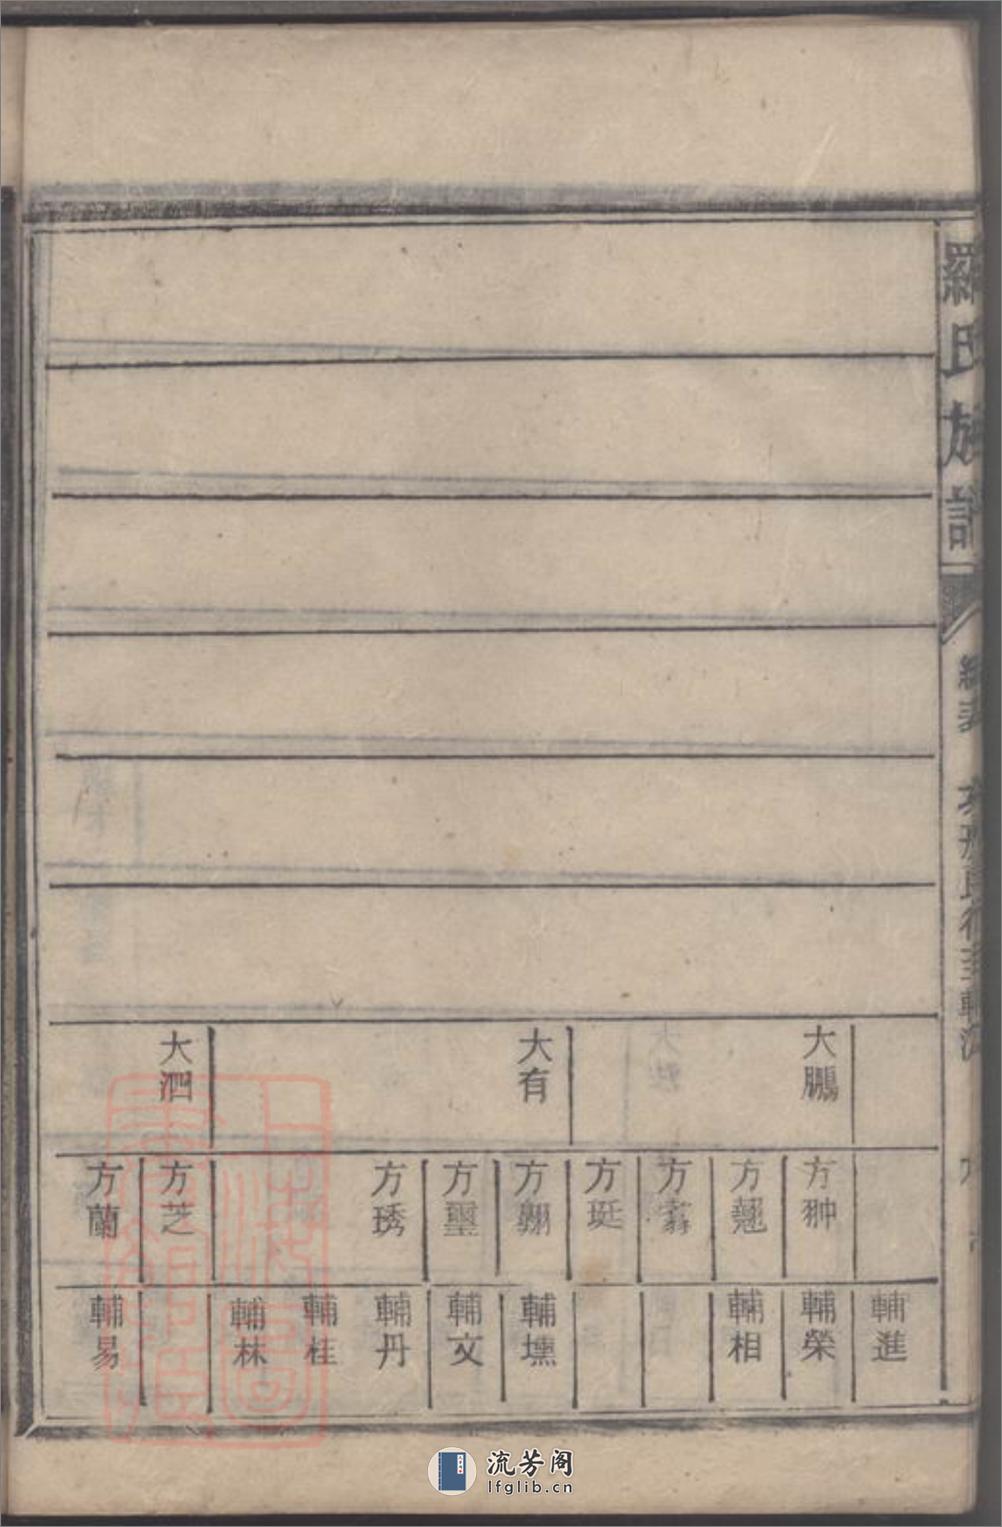 羅氏族譜
大鵬
大有
大泗
方翀
方翹
方翥
方珽
方翱
方璽
方琇
方芝
方蘭
輔進
輔榮
輔相
輔壎
輔文
輔丹
輔桂
輔林
輔易
流芳阁
lfglib.cn